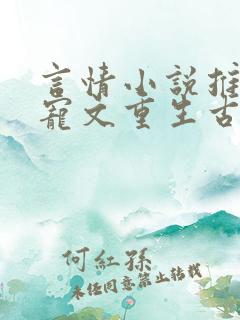 言情小說推
寵文重生古
何紅孫
未经同意禁止转载